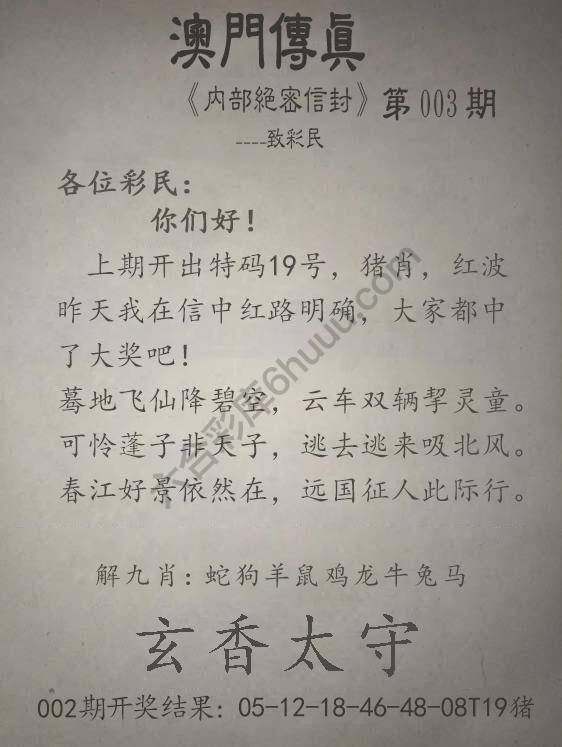 澳門傳眞
《内部絕密信封》第003期
----致彩民
各位彩民：
你们好！
上期开出特码19号，猪肖，红波
昨天我在信中红路明确，大家都中
了大奖吧！
蓦地飞仙降碧空，云车双辆挈灵童。
可怜蓬子非天子，逃去逃来吸北风。
春江好景依然在，远国征人此际行。
六合彩库6huuu.com
解九肖：蛇狗羊鼠鸡龙牛兔马
玄香太守
002期开奖结果：05-12-18-46-48-08T19猪